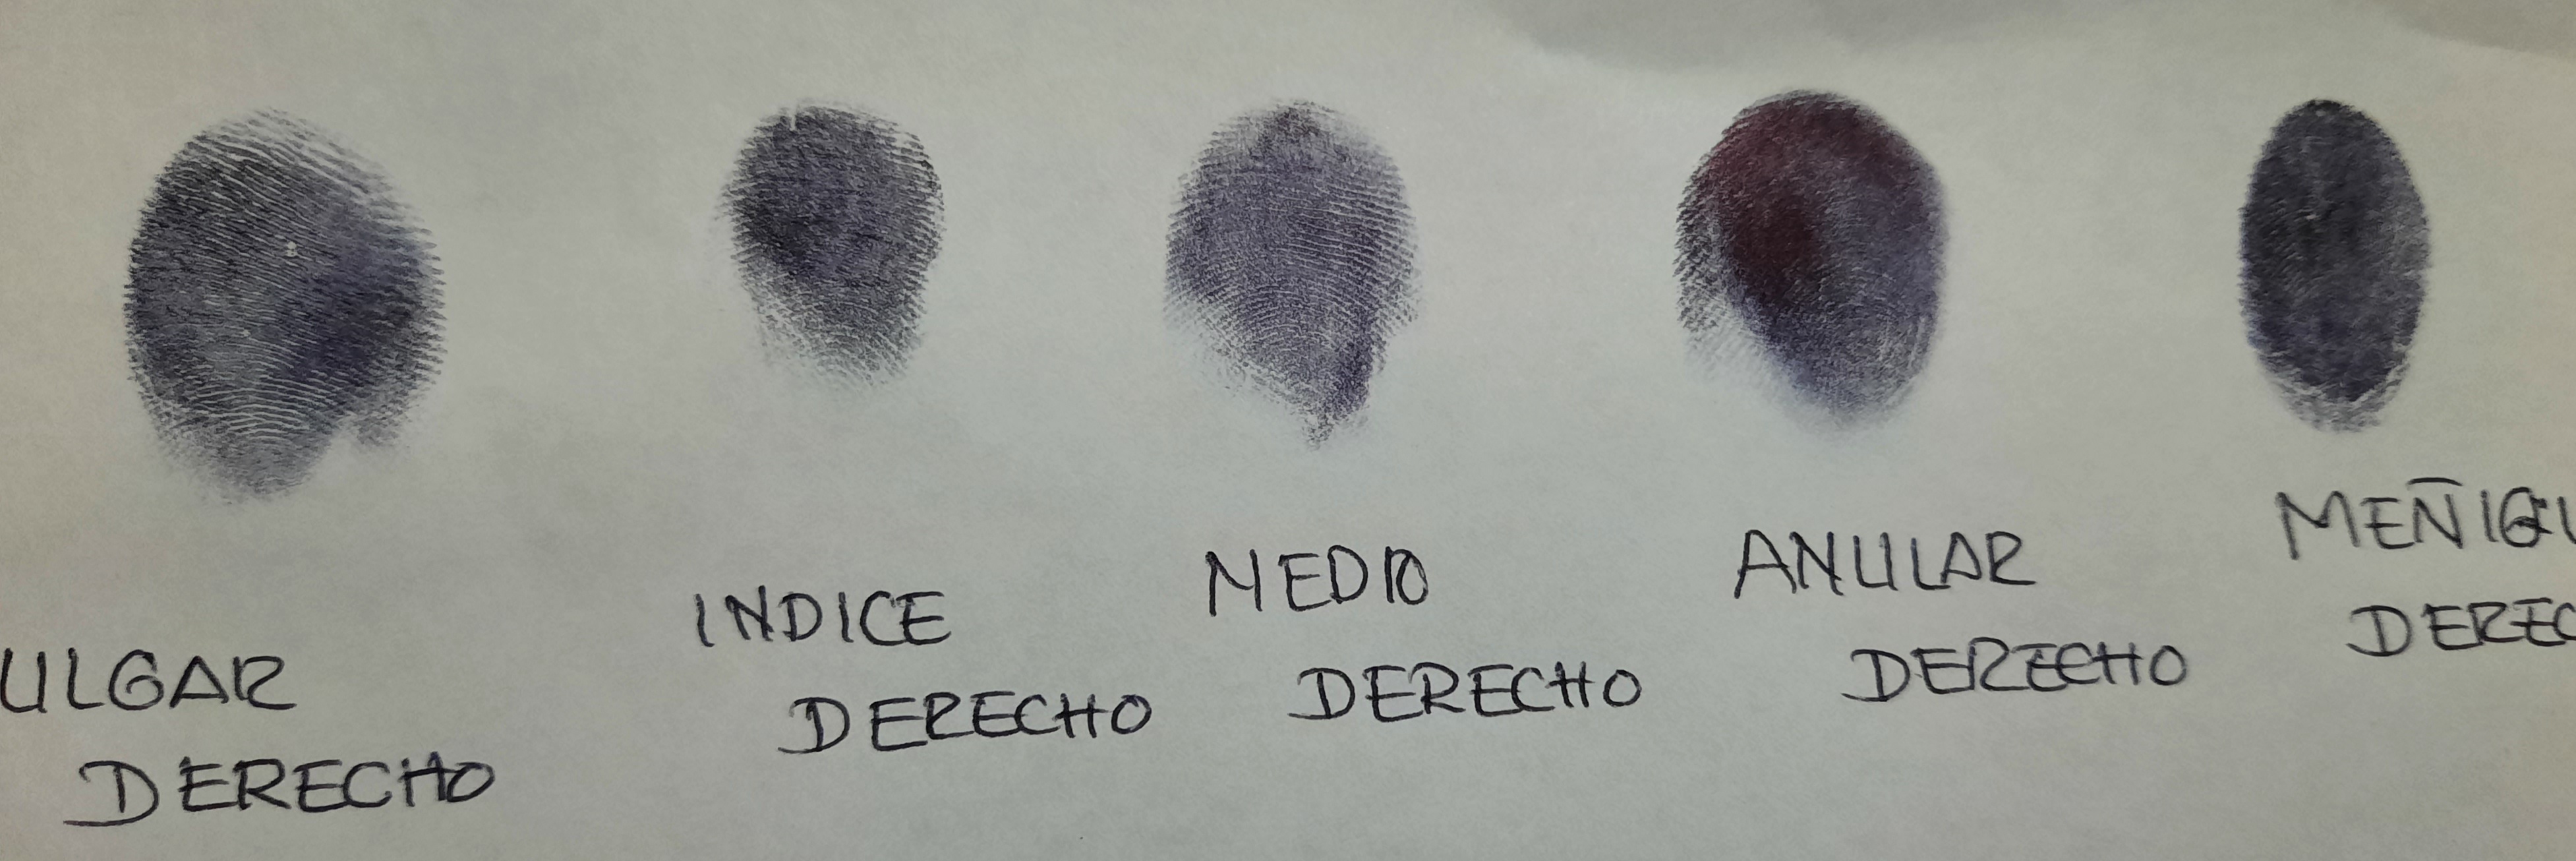 ULGAR
DERECHO
INDICE
DERECHO
MEDIO
DERECHO
ANULAR
DERECHO
MEÑIQU
DEREC